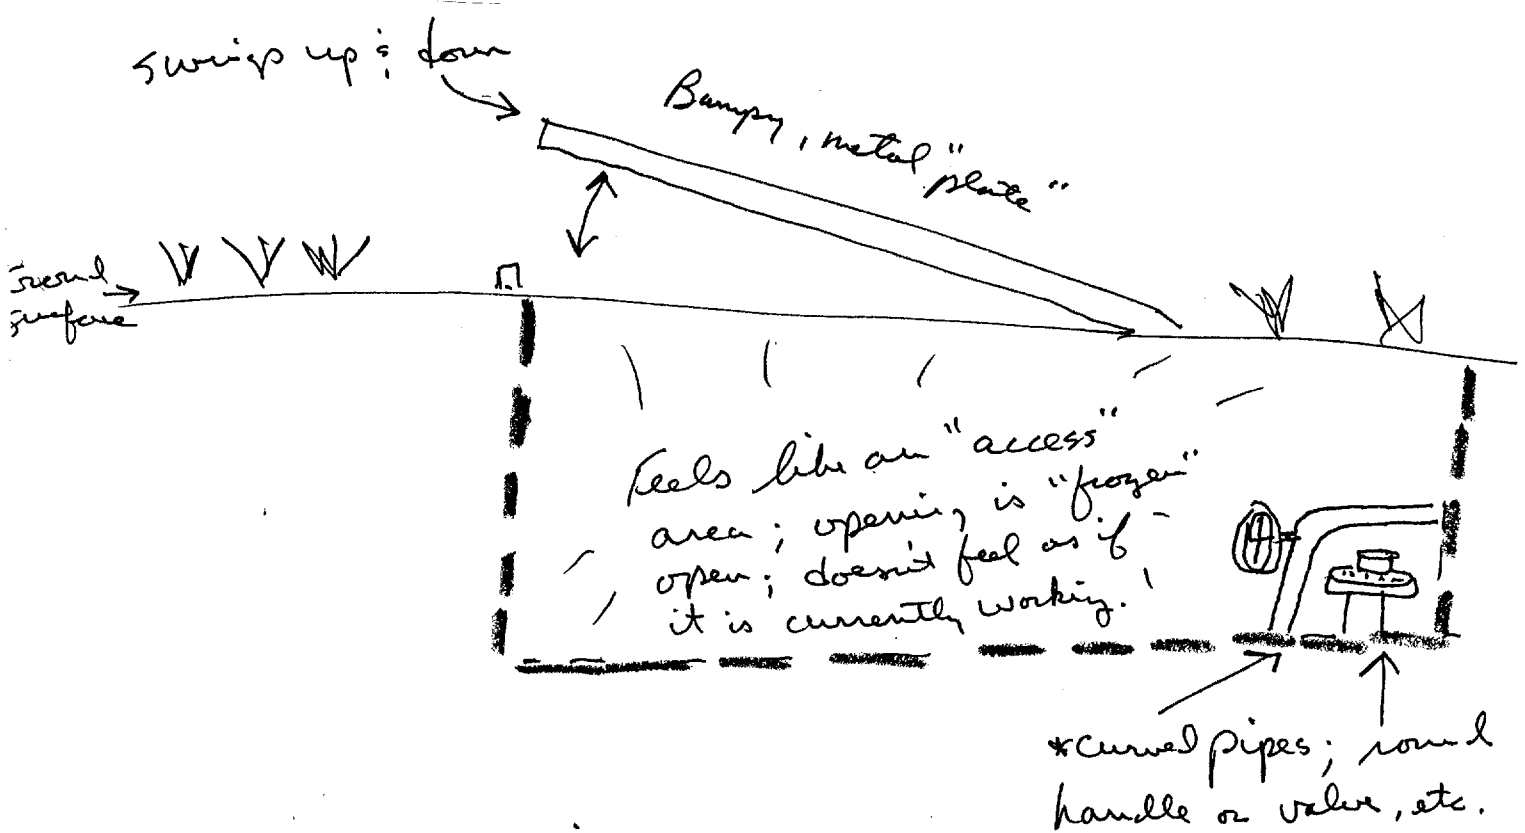 swings up & down
Bumpy, metal "
plate"
Ground
surface
Feels like an "access"
area; opening is "frozen"
open; doesn't feel as if
it is currently working.
*curved pipes; round
handle or valve, etc.